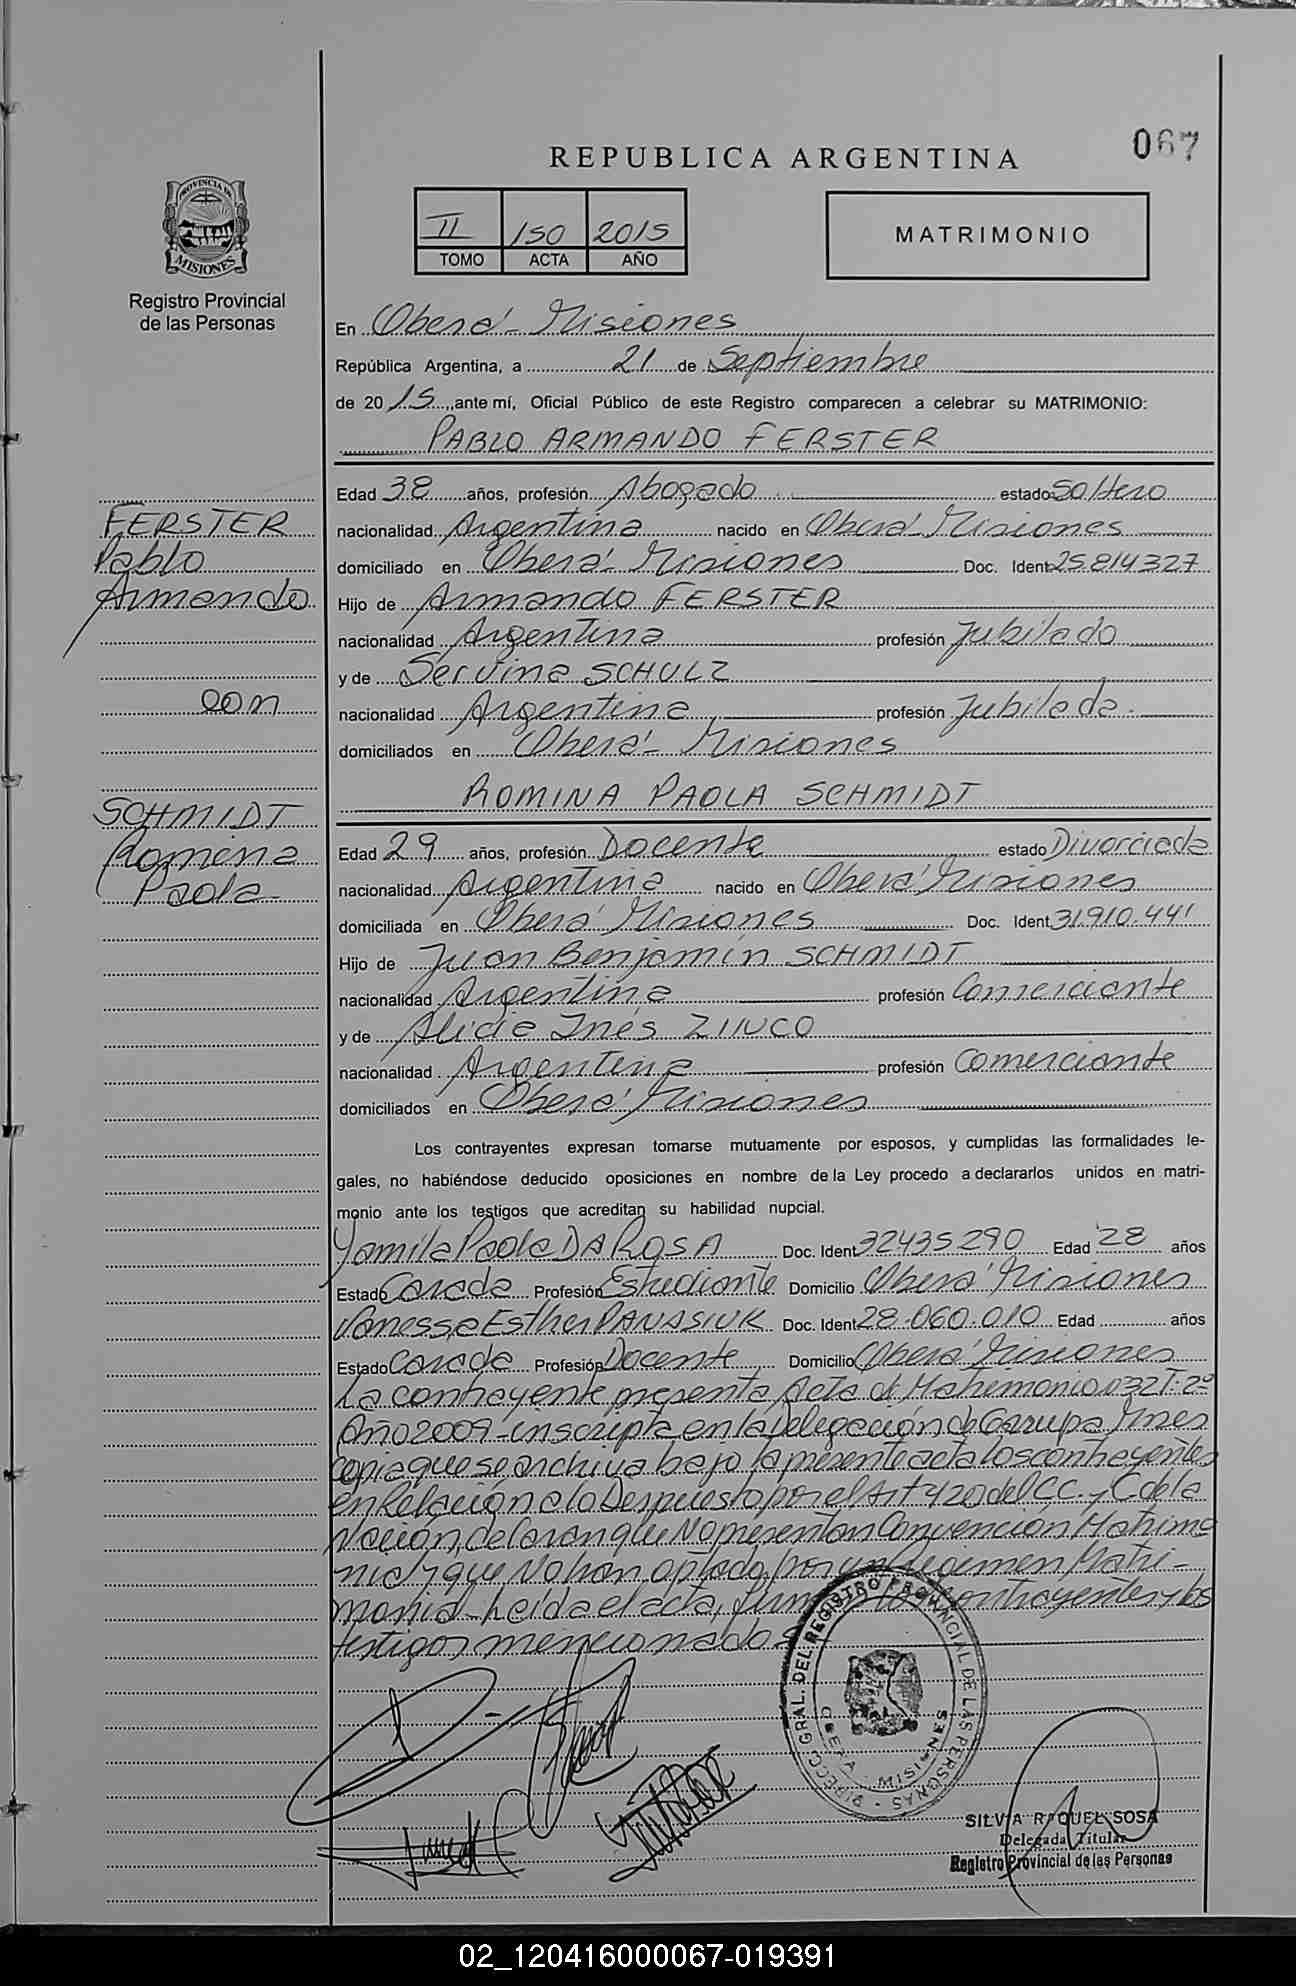 067
REPUBLICA ARGENTINA
II 150 2015
TOMO ACTA AÑO
MATRIMONIO
PROVINCIA DE
MISIONES
Registro Provincial
de las Personas
En Oberá - Misiones
República Argentina, a 21 de Septiembre
de 2015, ante mí, Oficial Público de este Registro comparecen a celebrar su MATRIMONIO:
PABLO ARMANDO FERSTER
Edad 38 años, profesión Abogado estado Soltero
nacionalidad Argentina nacido en Oberá Misiones
domiciliado en Oberá - Misiones Doc. Ident 25.814.327
Hijo de Armando FERSTER
nacionalidad Argentina profesión Jubilado
y de Servina SCHULZ
nacionalidad Argentina profesión Jubilada.
domiciliados en Oberá - Misiones
FERSTER
Pablo
Armando
con
SCHMIDT
Romina
Paola
ROMINA PAOLA SCHMIDT
Edad 29 años, profesión Docente estado Divorciada
nacionalidad Argentina nacido en Oberá Misiones
domiciliada en Oberá Misiones Doc. Ident 31.910.441
Hijo de Juan Benjamín SCHMIDT
nacionalidad Argentina profesión Comerciante
y de Alicia Inés
nacionalidad Argentina profesión Comerciante
domiciliados en Oberá Misiones
Los contrayentes expresan tomarse mutuamente por esposos, y cumplidas las formalidades le-
gales, no habiéndose deducido oposiciones en nombre de la Ley procedo a declararlos unidos en matri-
monio ante los testigos que acreditan su habilidad nupcial.
Yamila Paola DA ROSA Doc. Ident 32435290 Edad 28 años
Estado Casada Profesión Estudiante Domicilio Oberá Misiones
Vanessa Esther PANASIUK Doc. Ident 28.060.010 Edad años
Estado Casada Profesión Docente Domicilio Oberá Misiones
La contrayente presenta Acta de Matrimonio 032 T. 2º
Año 2009 - inscripta en la Delegación de Garupa Mnes
copia que se archiva bajo la presente acta los contrayentes
en Relación a lo Despuesto por el Art 420 del CC. y C de la
Nación, declaran que No presentan Convención Matrimo
nial y que No han optado por un Regimen Matri-
monial - Leida el acta, firman los contrayentes y los
testigos mencionados
DIRECC GRAL. DEL REGISTRO PROVINCIAL DE LAS PERSONAS
OBERA MISIONES
SILVIA RAQUEL SOSA
Delegada Titular
Registro Provincial de las Personas
02_120416000067-019391